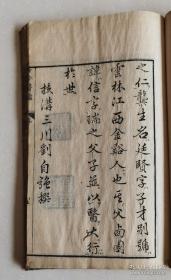 之仁龔生名廷賢字子才別號
雲林江西金谿人也其父西園
諱信字瑞之父子並以醫大行
於世
扶溝三川劉自強撰